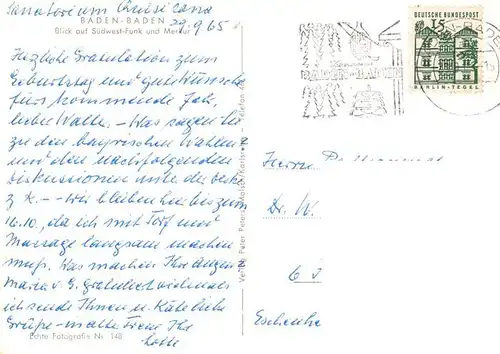 Sanatorium Quisisana
BADEN-BADEN 29.9.65
Blick auf Südwest-Funk und Merkur
Herzliche Gratulation zum
Geburtstag und gute Wünsche
fürs kommende Jahr,
lieber Walter. - Was sagen Sie
zu den bayrischen Wahlen
und den nachfolgenden
Diskussionen
- Wir bleiben hier bis zum
16.10., da ich mit Torf und
Massage langsam machen
muß. Was machen Ihre Augen?
Maria v. G. gratuliert vielmals
ich sende Ihnen u. Käte liebe
Grüße - in alter Treue Ihre
Lotte
Echte Fotografie Nr. 148
BADEN-BADEN
DEUTSCHE BUNDESPOST
15
BERLIN-TEGEL
Herrn
Dr. W.
6